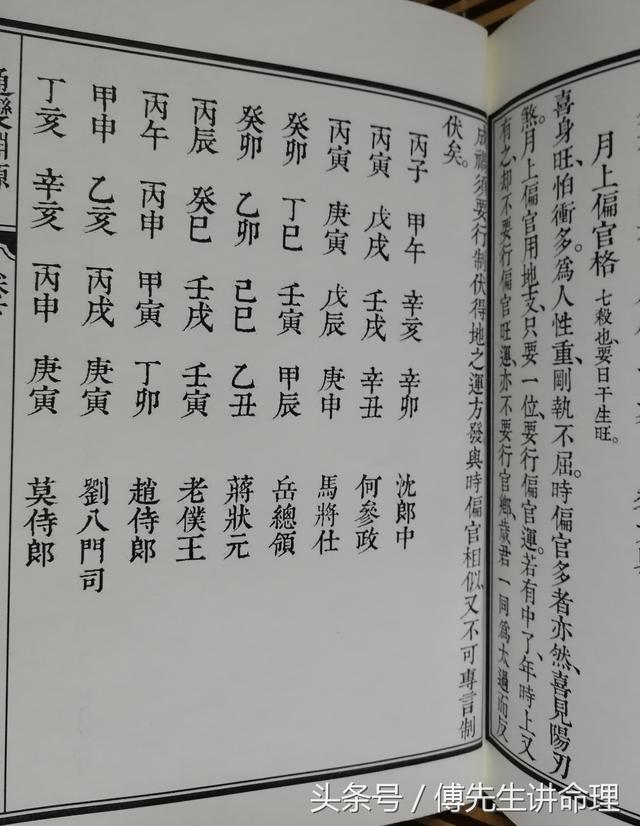 月上偏官格 七殺也、要日干生旺。
喜身旺、怕衝多。爲人性重、剛執不屈。時偏官多者亦然、喜見陽刃
煞。月上偏官用地支、只要一位、要行偏官運。若有中了、年時上又
有之、却不要行偏官旺運、亦不要行官鄉、歲君一同爲太過而反
成禍、須要行制伏得地之運方發、與時偏官相似、又不可專言制
伏矣。
丙子 甲午 辛亥 辛卯 沈郎中
丙寅 戊戌 壬戌 辛丑 何參政
丙寅 庚寅 戊辰 庚申 馬將仕
癸卯 丁巳 壬寅 甲辰 岳總領
癸卯 乙卯 己巳 乙丑 蔣狀元
丙辰 癸巳 壬戌 壬寅 老僕王
丙午 丙申 甲寅 丁卯 趙侍郎
甲申 乙亥 丙戌 庚寅 劉八門司
丁亥 辛亥 丙申 庚寅 莫侍郎
通變淵源
头条号 / 傅先生讲命理